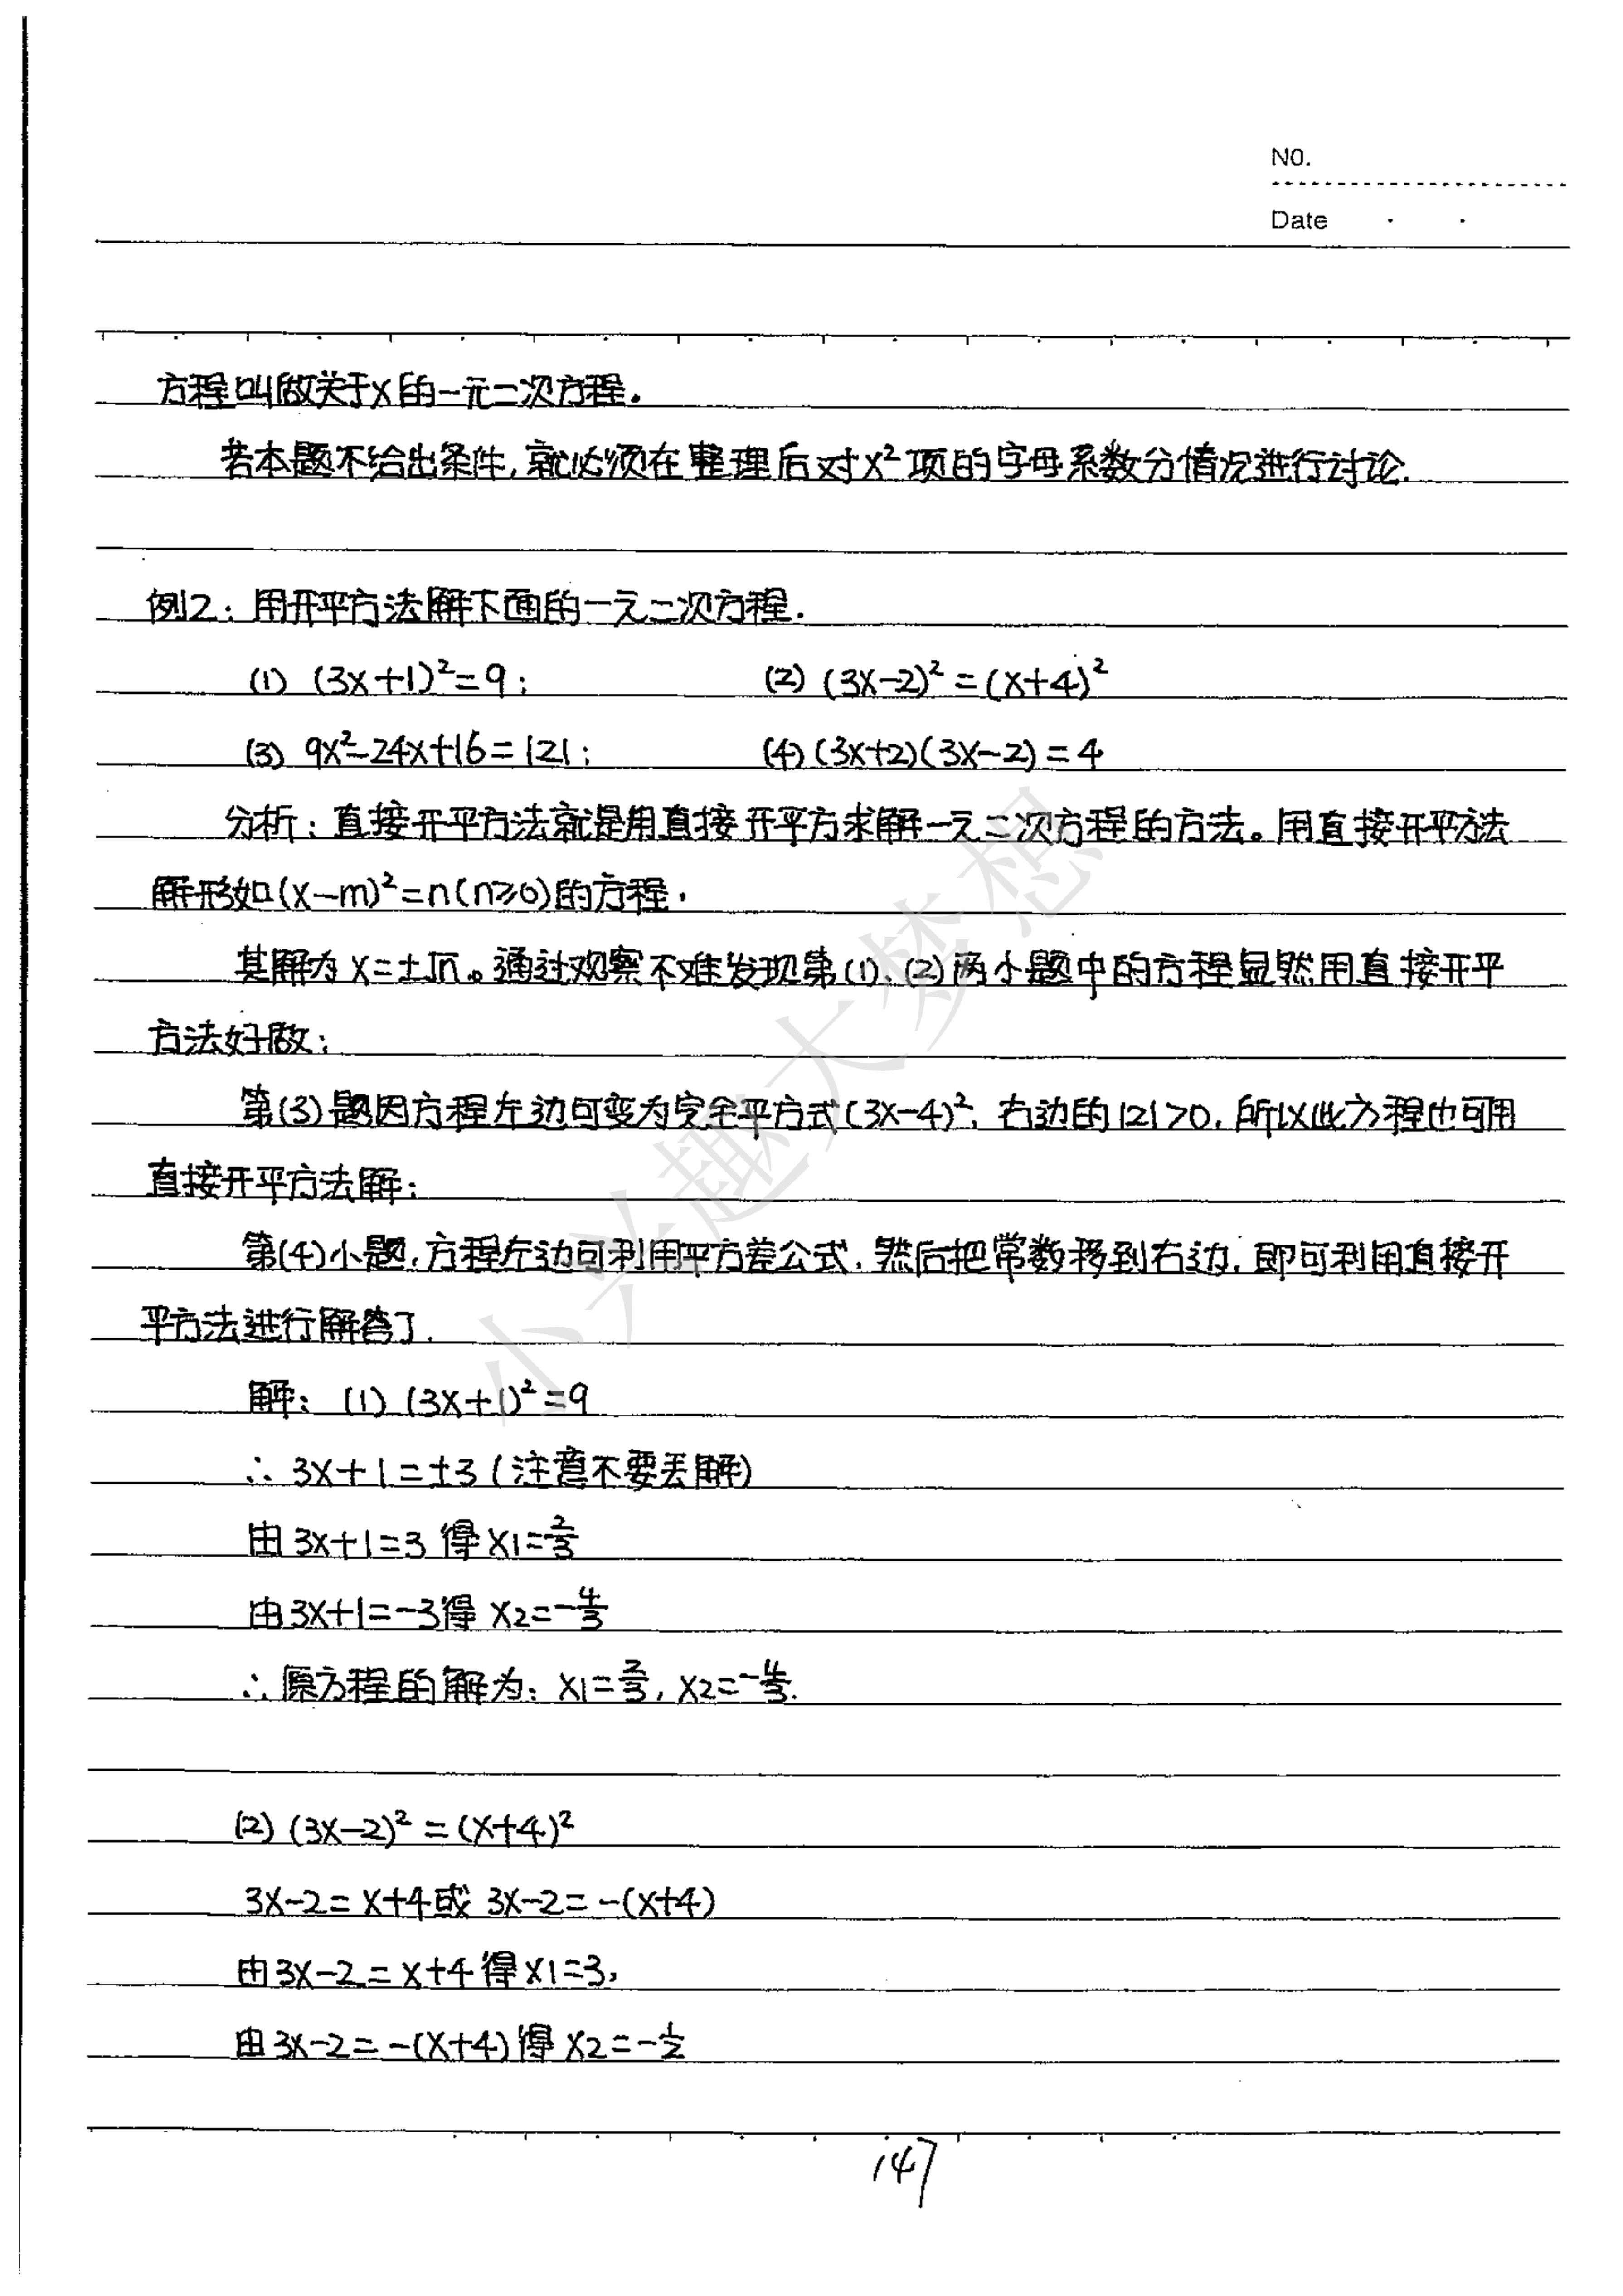 NO.
Date
方程叫做关于x的一元二次方程.
若本题不给出条件,就必须在整理后对x²项的字母系数分情况进行讨论.
例2:用开平方法解下面的一元二次方程.
(1) (3x+1)²=9; (2) (3x-2)²=(x+4)²
(3) 9x²-24x+16=121; (4) (3x+2)(3x-2)=4
分析:直接开平方法就是用直接开平方求解一元二次方程的方法。用直接开平方法
解形如(x-m)²=n(n≥0)的方程,
其解为x=±√n。通过观察不难发现第(1)、(2)两小题中的方程显然用直接开平
方法好做;
第(3)题因方程左边可变为完全平方式(3x-4)²,右边的121>0,所以此方程也可用
直接开平方法解;
第(4)小题,方程左边可利用平方差公式,然后把常数移到右边,即可利用直接开
平方法进行解答了.
解:(1) (3x+1)²=9
∴ 3x+1=±3(注意不要丢解)
由3x+1=3得x1=2/3
由3x+1=-3得x2=-4/3
∴原方程的解为:x1=2/3,x2=-4/3.
(2) (3x-2)²=(x+4)²
3x-2=x+4或3x-2=-(x+4)
由3x-2=x+4得x1=3,
由3x-2=-(x+4)得x2=-1/2
147
小兴趣大梦想